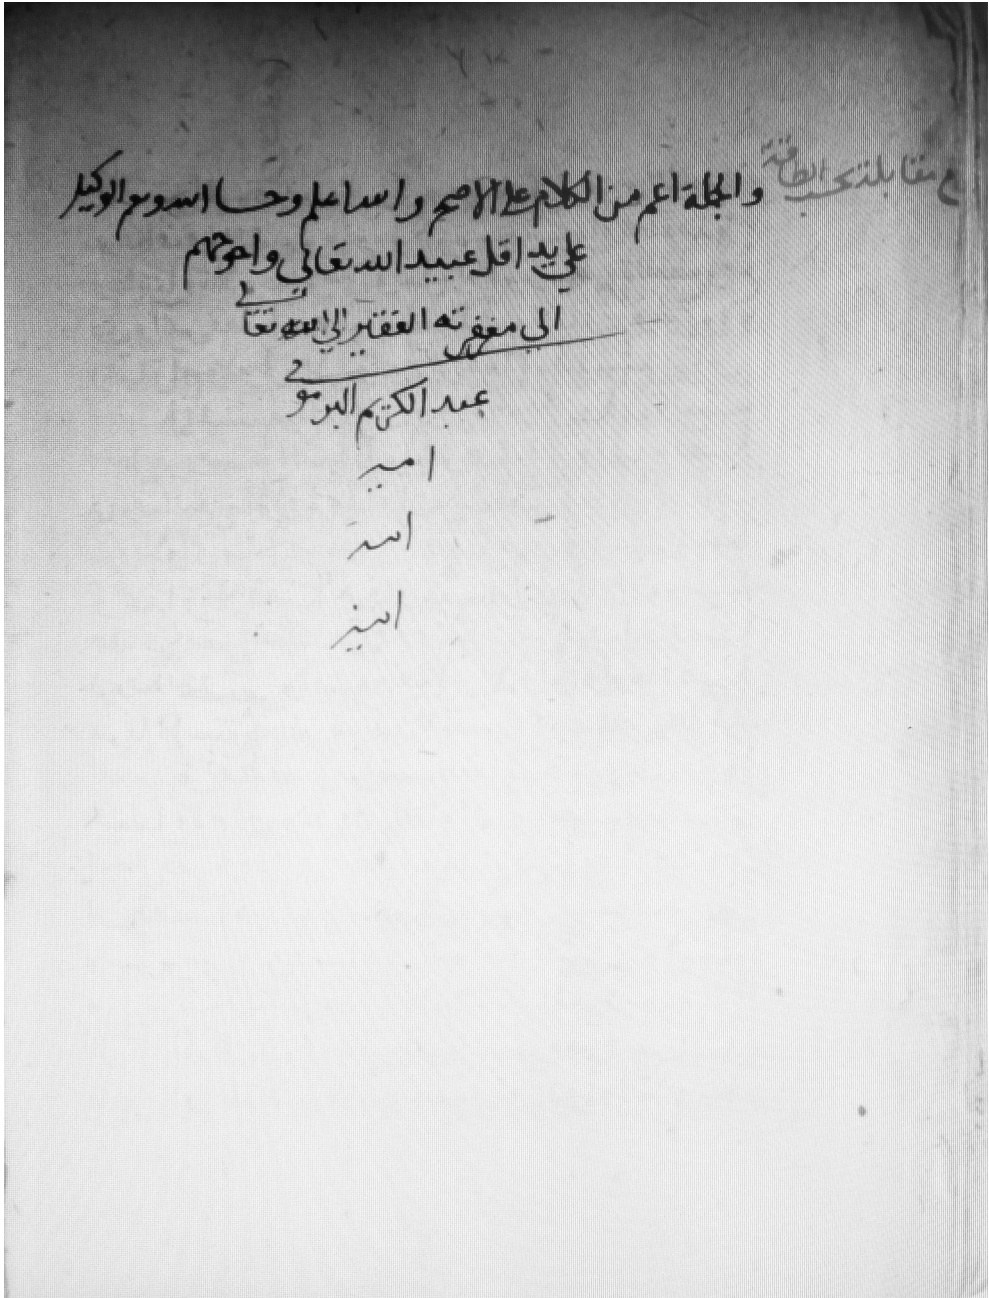 م مقابلة بحسب الطاقة
والجملة اعم من الكلام على الاصح والله اعلم وحسبنا الله ونعم الوكيل
على يد اقل عبيد الله تعالى واحوجهم
الى مغفرته الفقير الى الله تعالى
عبد الكريم البرموني
امين
امين
امين